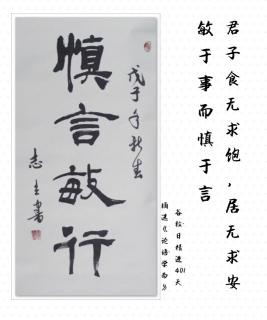 君子食无求饱，居无求安
敏于事而慎于言
谷牧·日精进401天
摘选《论语学而》
戊子年秋生
慎言敏行
志主书